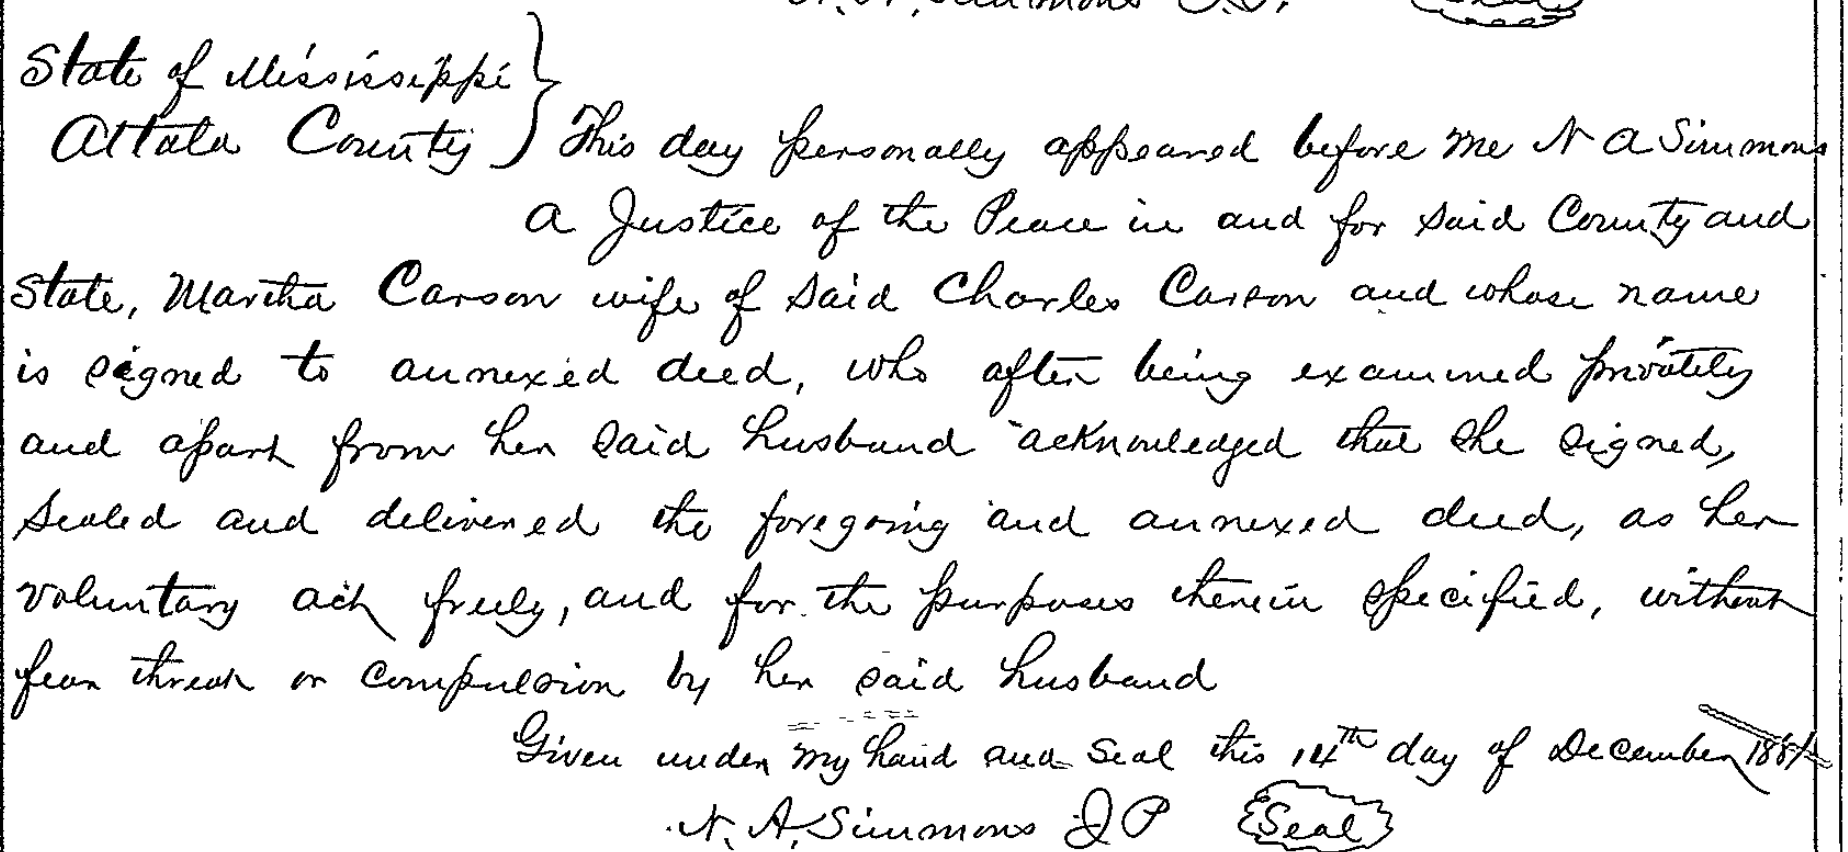 N. A. Simmons J.P. Seal
State of Mississippi
Attala County } This day personally appeared before me N A Simmons
a Justice of the Peace in and for said County and
State, Martha Carson wife of said Charles Carson and whose name
is signed to annexed deed, who after being examined privately
and apart from her said husband acknowledged that she signed,
sealed and delivered the foregoing and annexed deed, as her
voluntary act freely, and for the purposes therein specified, without
fear threat or compulsion by her said husband
Given under my hand and seal this 14th day of December 1881
N. A. Simmons J P Seal